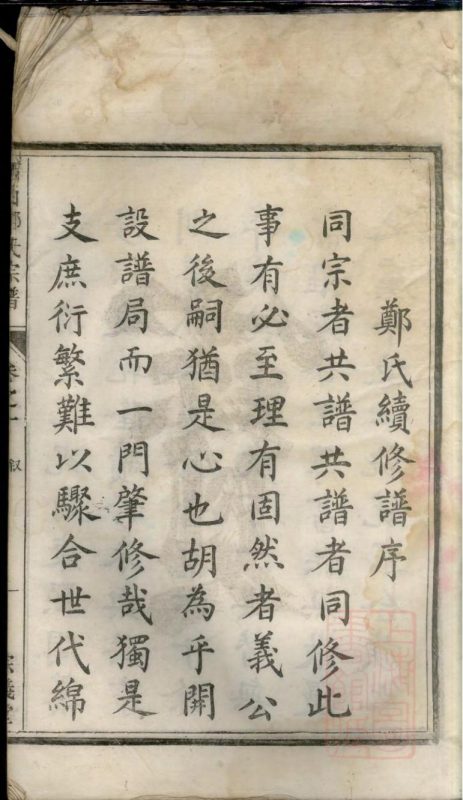 鄭氏續修譜序
同宗者共譜共譜者同修此
事有必至理有固然者義公
之後嗣猶是心也胡為乎開
設譜局而一門肇修哉獨是
支庶衍繁難以驟合世代綿
鄭氏宗譜
卷之一
叙
一
宗義堂